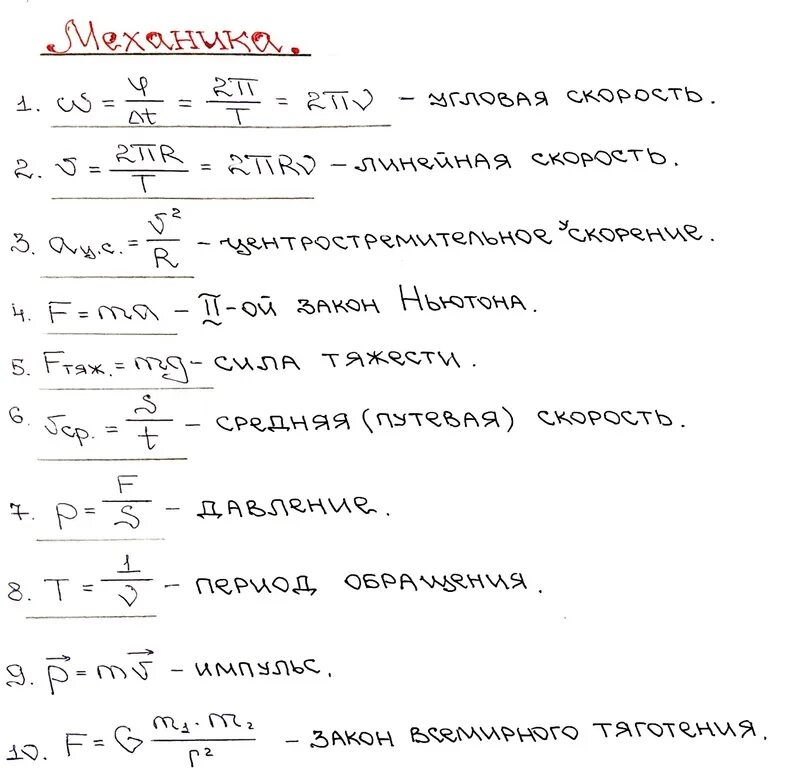 Механика.
1. ω = φ/Δt = 2π/T = 2πν – угловая скорость.
2. v = 2πR/T = 2πRν – линейная скорость.
3. aц.с. = v²/R – центростремительное ускорение.
4. F = ma – II-ой закон Ньютона.
5. Fтяж. = mg – сила тяжести.
6. vср. = S/t – средняя (путевая) скорость.
7. p = F/S – давление.
8. T = 1/ν – период обращения.
9. p⃗ = mv⃗ – импульс.
10. F = G m₁·m₂/r² – закон всемирного тяготения.